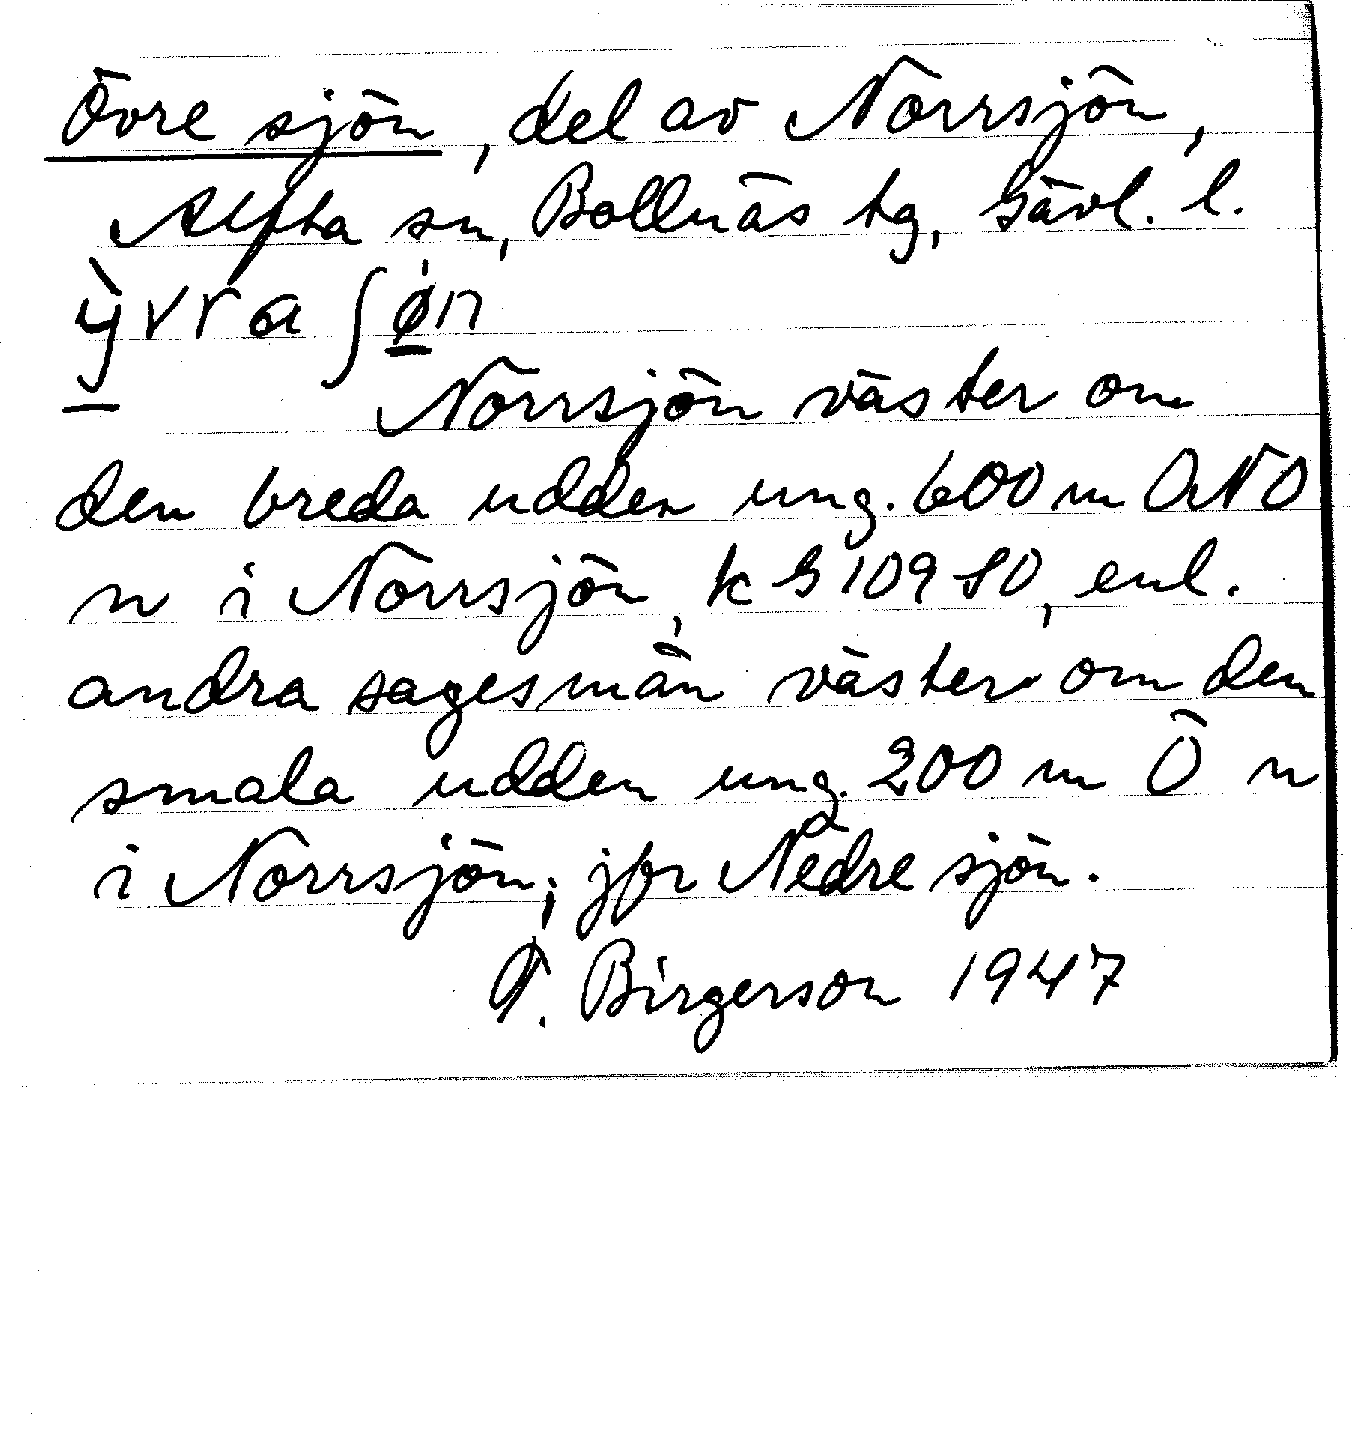 Övre sjön, del av Norrsjön,
Alfta sn, Bollnäs tg, Gävl. l.
ỳvra ʃøn
Norrsjön väster om
den breda udden ung. 600 m ONO
n i Norrsjön, k G 109 80, enl.
andra sagesmän väster om den
smala udden ung. 200 m Ö n
i Norrsjön; jfr Nedre sjön.
Birgerson 1947